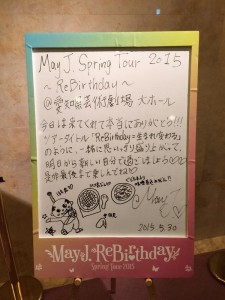 May J. Spring Tour 2015
～ReBirthday～
@愛知県芸術劇場 大ホール
今日は来てくれて本当にありがとう!!!
ツアータイトル「ReBirthday=生まれ変わる」
のように、一緒に思いっきり盛り上がって、
明日から新しい自分で過ごしましょう
是非最後まで楽しんでね
May J.
2015.5.30
May J. ReBirthday
Spring Tour 2015